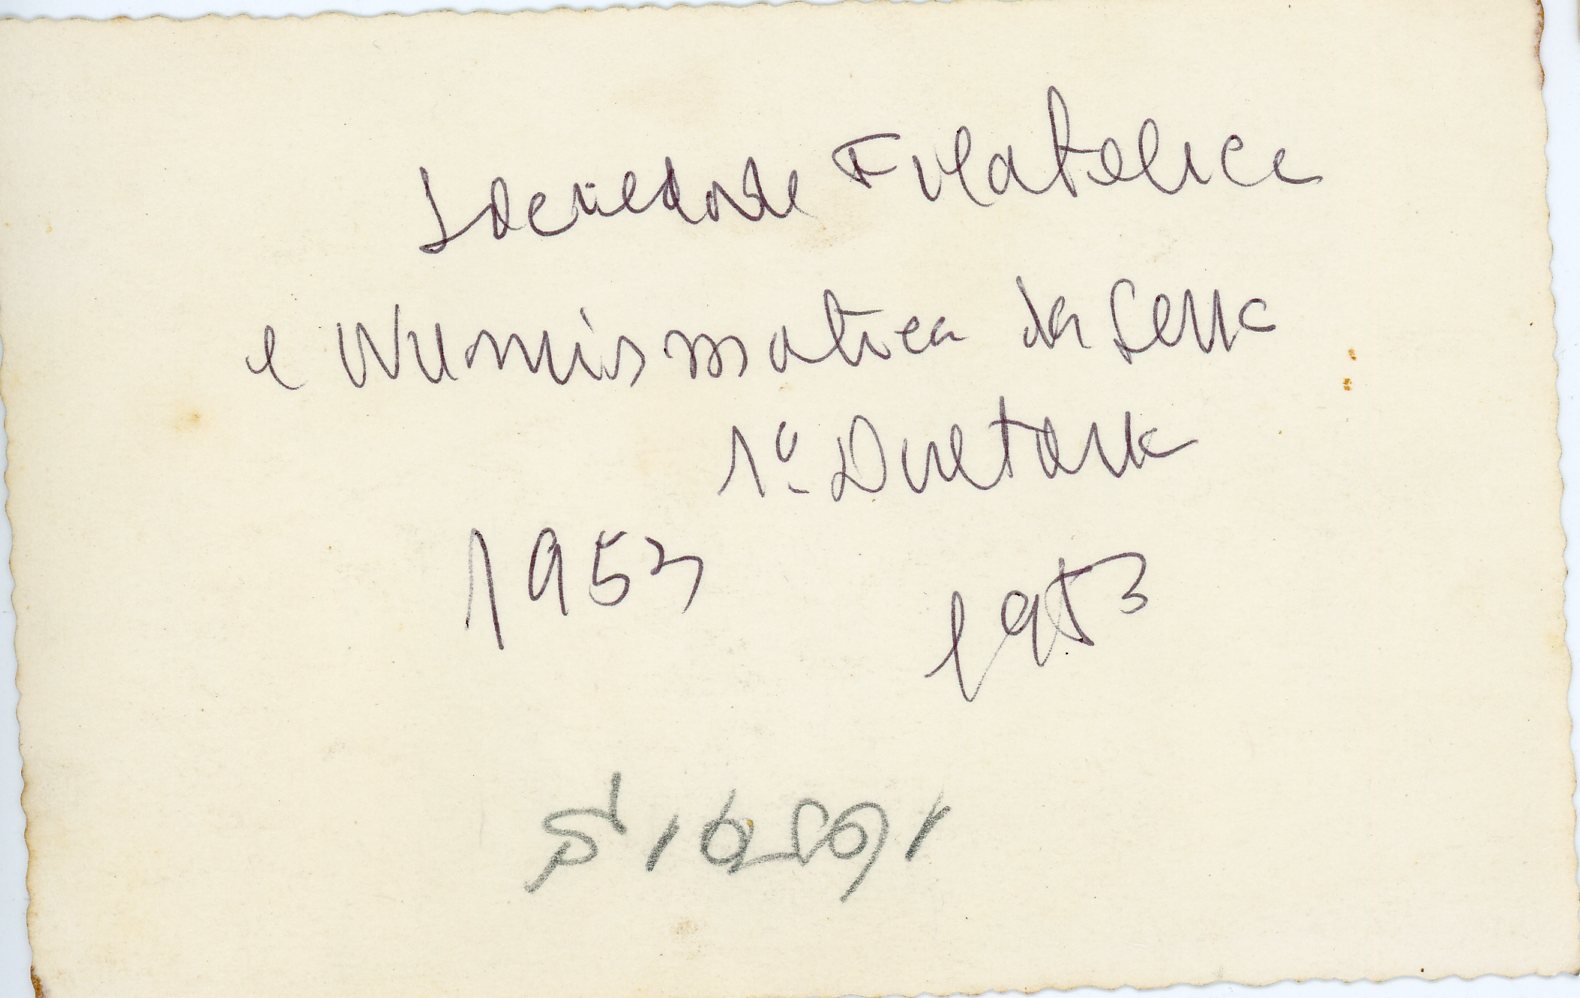 Sociedade Filatelica
e Numismatica da Serra
1ª Diretoria
1953
1953